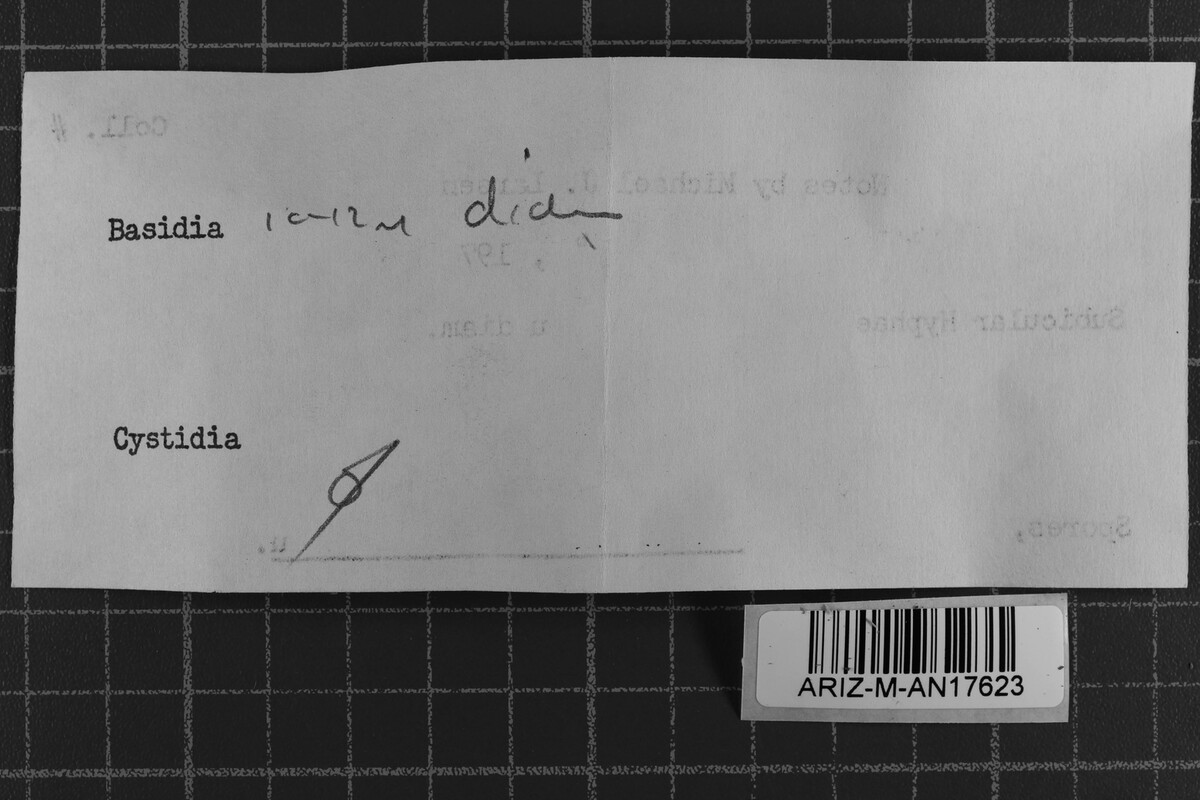 Coll. #
Notes by Michael J. Larsen
Basidia 10-12 µ
, 197
Subicular Hyphae u diam.
Cystidia
Spores, u.
ARIZ-M-AN17623